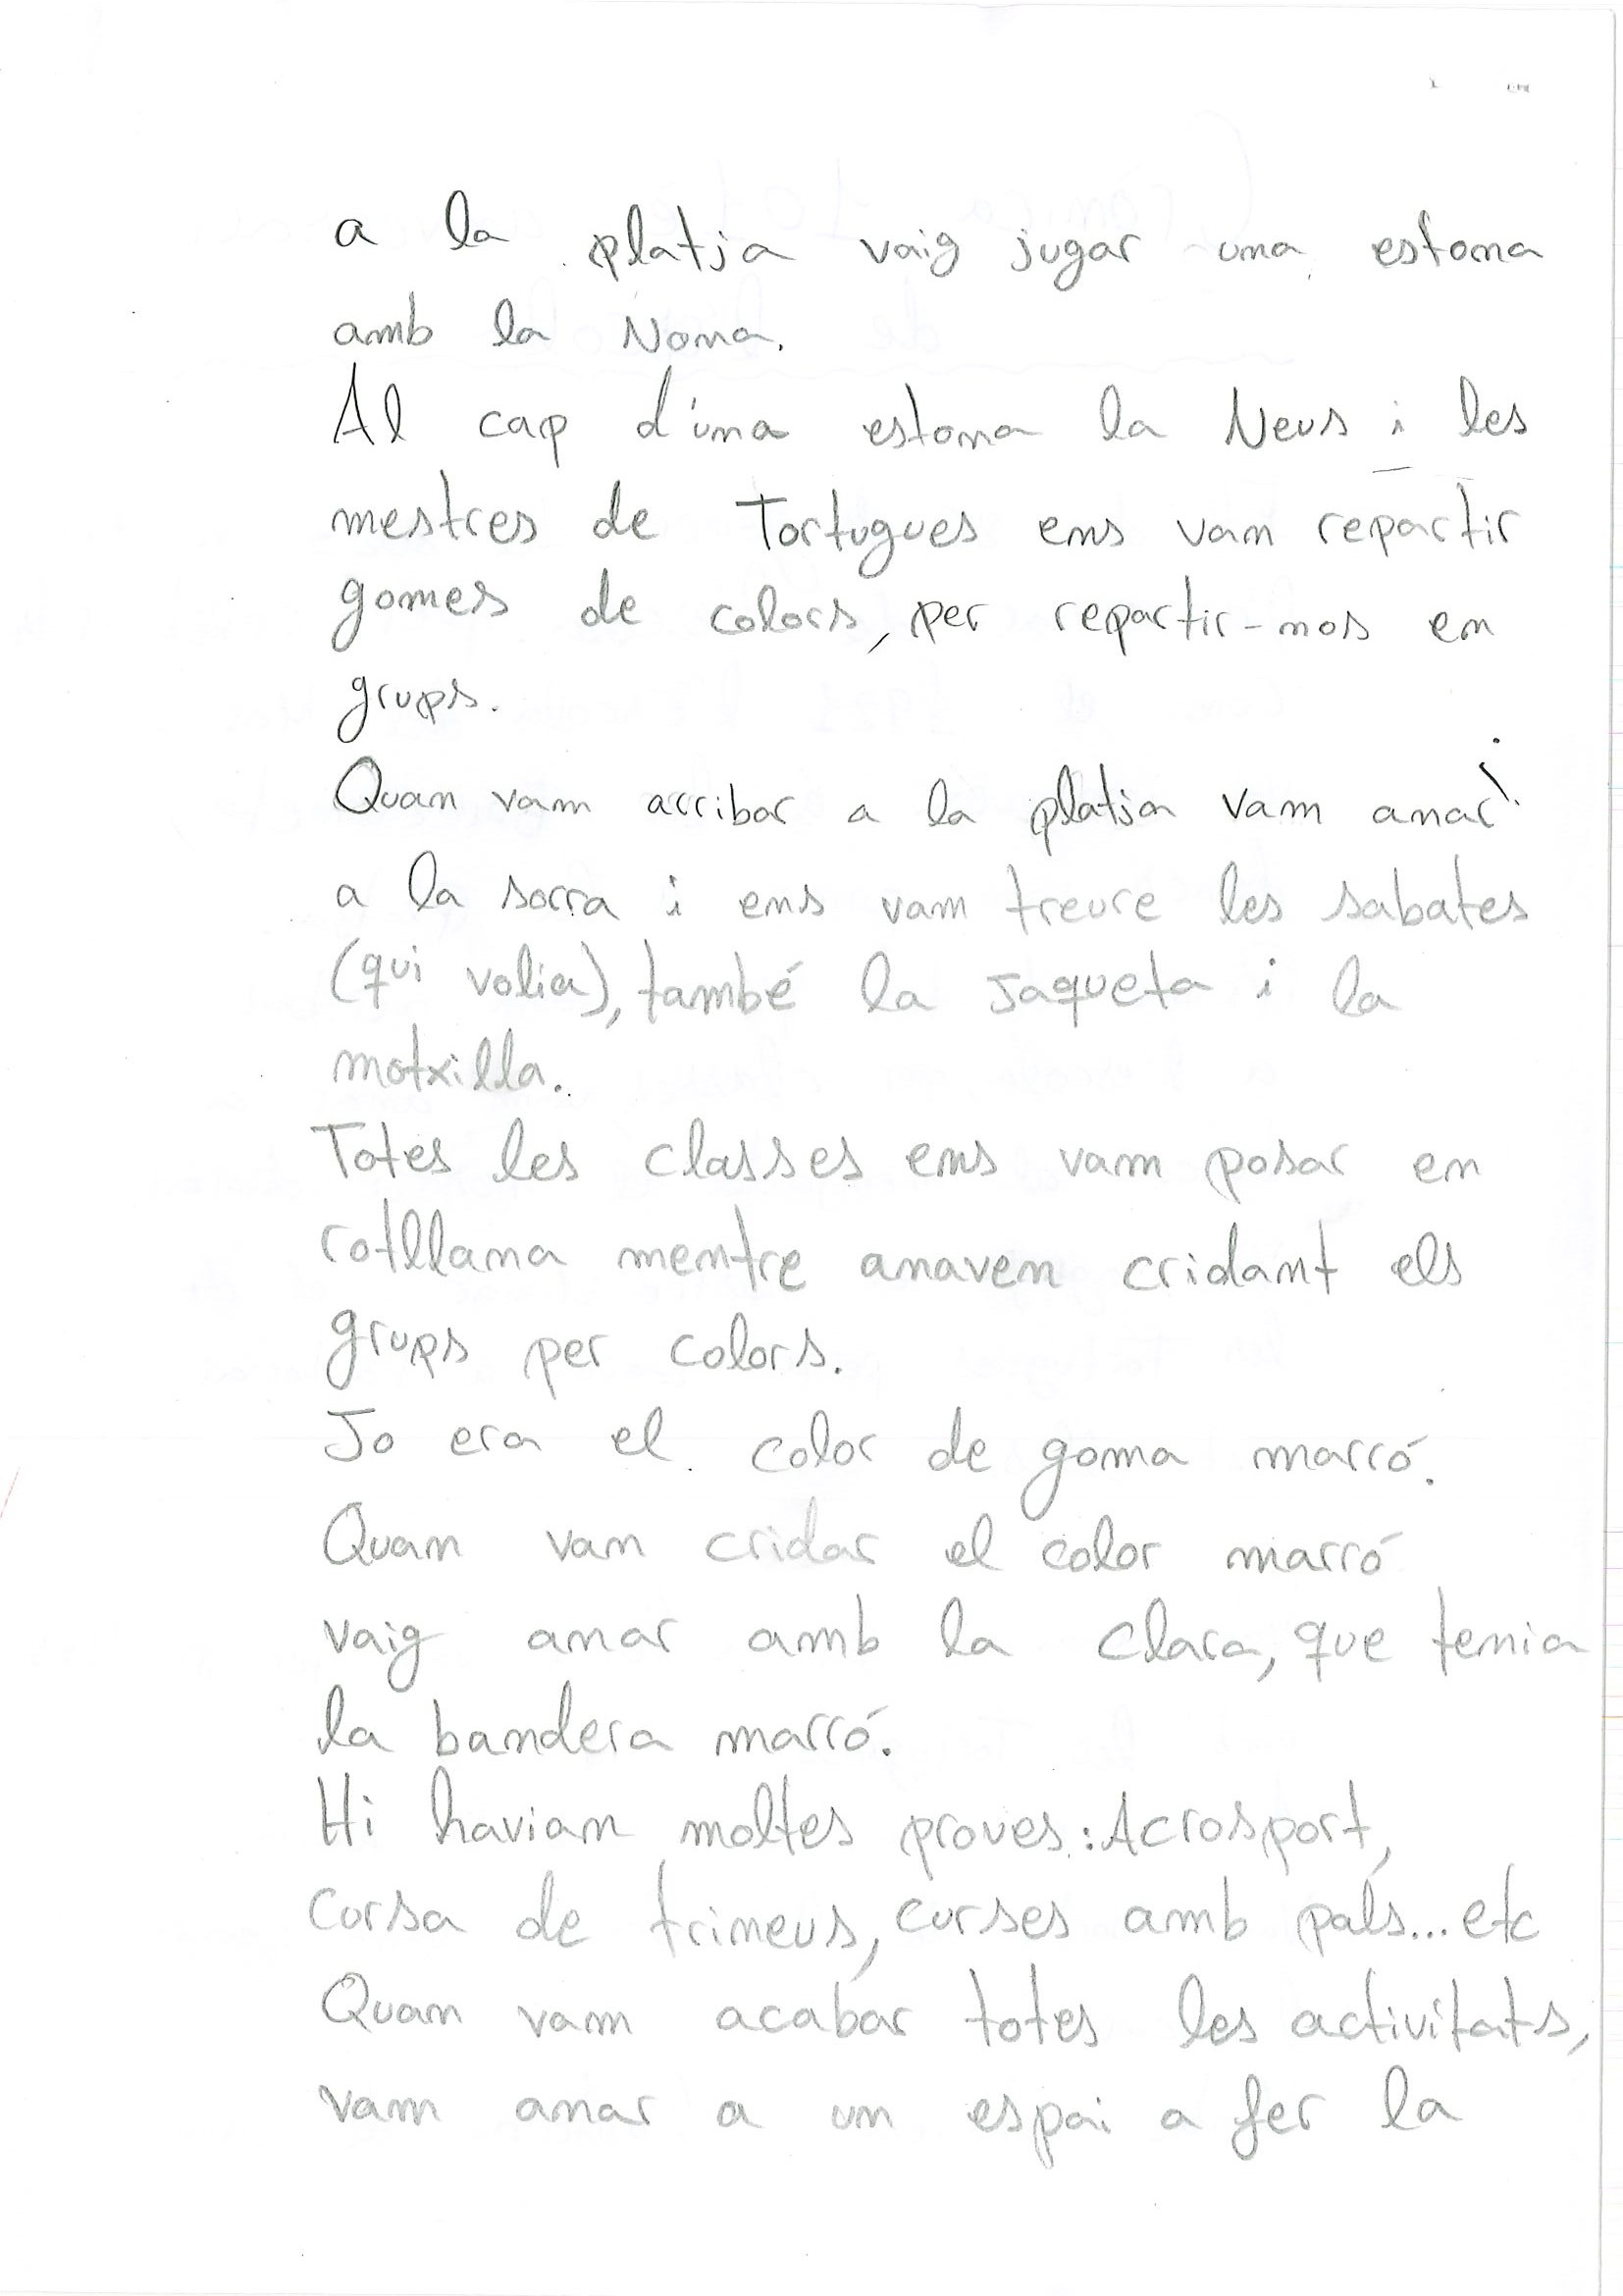 a la platja vaig jugar una estona
amb la Nona.
Al cap d'una estona la Neus i les
mestres de Tortugues ens vam repartir
gomes de colors, per repartir-nos en
grups.
Quan vam arribar a la platja vam anar
a la sorra i ens vam treure les sabates
(qui volia), també la jaqueta i la
motxilla.
Totes les classes ens vam posar en
rotllana mentre anaven cridant els
grups per colors.
Jo era el color de goma marró.
Quan van cridar el color marró
vaig anar amb la Clara, que tenia
la bandera marró.
Hi haviam moltes proves: Acrosport,
corsa de trineus, curses amb pals... etc
Quan vam acabar totes les activitats,
vam anar a un espai a fer la